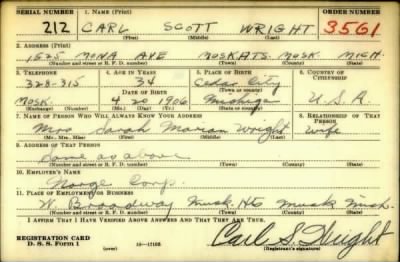 SERIAL NUMBER 1. NAME (Print) ORDER NUMBER
212 CARL SCOTT WRIGHT 3561
(First) (Middle) (Last)
2. ADDRESS (Print)
1525 MONA AVE MUSK HTS. MUSK. MICH.
(Number and street or R. F. D. number) (Town) (County) (State)
3. TELEPHONE 4. AGE IN YEARS 5. PLACE OF BIRTH 6. COUNTRY OF CITIZENSHIP
328-315 34 Cedar City
DATE OF BIRTH (Town or county)
MUSK. 4 20 1906 Michigan U.S.A.
(Exchange) (Number) (Mo.) (Day) (Yr.) (State or country)
7. NAME OF PERSON WHO WILL ALWAYS KNOW YOUR ADDRESS 8. RELATIONSHIP OF THAT PERSON
Mrs Sarah Marian Wright Wife
(Mr., Mrs., Miss) (First) (Middle) (Last)
9. ADDRESS OF THAT PERSON
Same as above
(Number and street or R. F. D. number) (Town) (County) (State)
10. EMPLOYER'S NAME
Norge Corp.
11. PLACE OF EMPLOYMENT OR BUSINESS
W. Broadway Musk. Hts Musk Mich.
(Number and street or R. F. D. number) (Town) (County) (State)
I AFFIRM THAT I HAVE VERIFIED ABOVE ANSWERS AND THAT THEY ARE TRUE.
REGISTRATION CARD
D. S. S. Form 1 16-17105 Carl S. Wright
(over) (Registrant's signature)